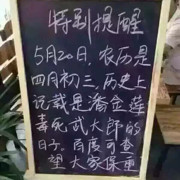 特别提醒
5月20日,农历是
四月初三,历史上
记载是潘金莲
毒死武大郎的
日子。百度可查
望大家保重